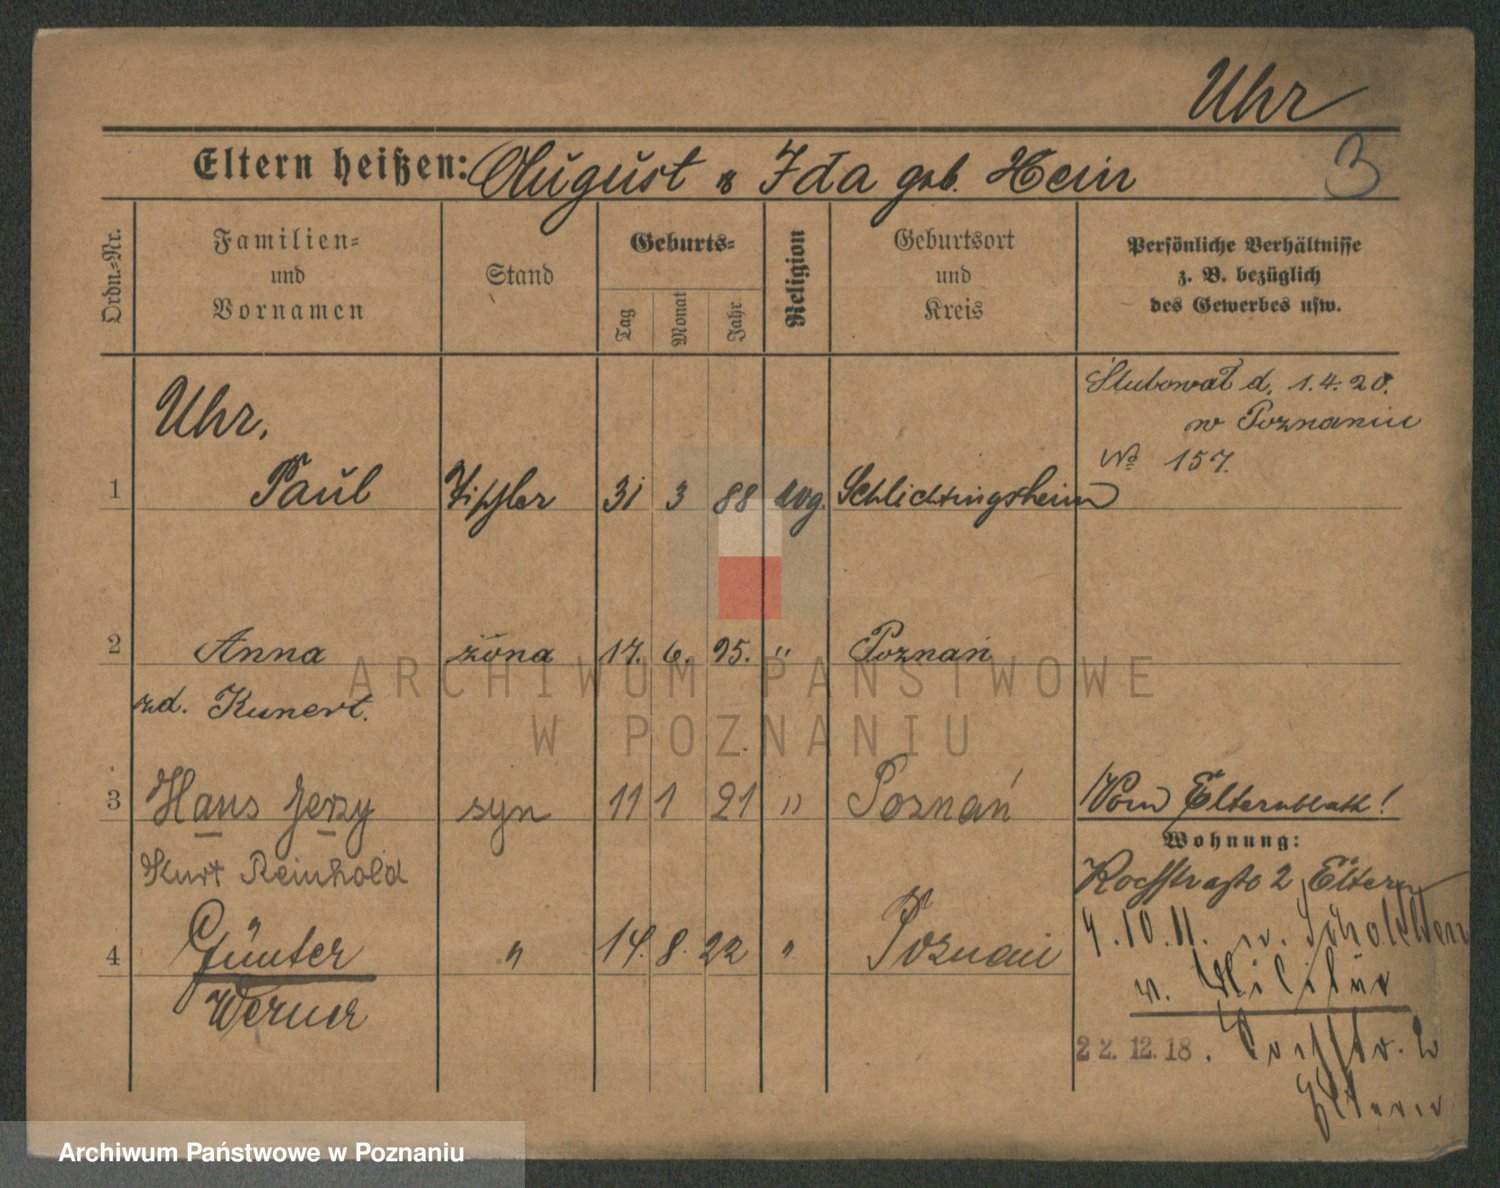 Uhr
Eltern heißen: August & Ida geb. Hein
3
Ordn.=Nr.
Familien=
und
Vornamen
Stand
Geburts=
Tag
Monat
Jahr
Religion
Geburtsort
und
Kreis
Persönliche Verhältnisse
z. B. bezüglich
des Gewerbes usw.
Ślubował d. 1.4.20.
w Poznaniu
No 157.
Uhr,
1 Paul Tischler 31 3 88 evg. Schlichtingsheim
2 Anna żona 17. 6. 95. " Poznań
zd. Kunert.
3 Hans Jerzy syn 11 1 21 " Poznań
Kurt Reinhold
4 Günter " 14. 8. 22 " Poznań
Werner
Vom Elternblatt!
Wohnung:
Kochstraße 2 Eltern
9.10.11. v.
v. Militär
22.12.18.
Eltern
ARCHIWUM PAŃSTWOWE
W POZNANIU
Archiwum Państwowe w Poznaniu